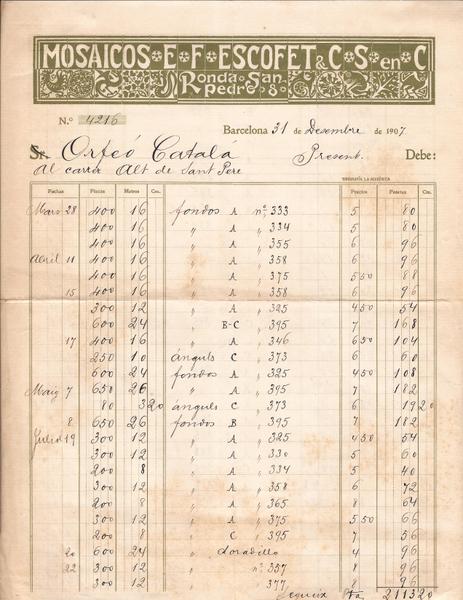 MOSAICOS·E·F·ESCOFET & C·S·en·C
Ronda San Pedro 8
N.º 4216
Barcelona 31 de Desembre de 1907.
Sr. Orfeó Catalá Present. Debe:
al carrer Alt de Sant Pere
Fechas Piezas Metros Cms. Precios Pesetas Cts.
Mars 28 400 16 fondos A nº. 333 5 80
400 16 " A " 334 5 80
400 16 " A " 355 6 96
Abril 11 400 16 " A " 358 6 96
400 16 " A " 375 5 50 88
15 400 16 " A " 358 6 96
300 12 " A " 325 4 50 54
600 24 " B-C " 395 7 168
17 400 16 " A " 346 6 50 104
250 10 ánguls C " 373 6 60
600 24 fondos A " 325 4 50 108
Maig 7 650 26 " A " 395 7 182
80 3 20 ánguls C " 373 6 19 20
8 650 26 fondos B " 395 7 182
Juliol 19 300 12 " A " 325 4 50 54
300 12 " A " 330 5 60
200 8 " A " 334 5 40
300 12 " A " 358 6 72
200 8 " A " 365 8 64
300 12 " A " 375 5 50 66
200 8 " C " 395 7 56
20 600 24 " doradillo 4 96
22 300 12 " nº. 357 8 96
300 12 " 377 8 96
Segueix Pta 2113 20